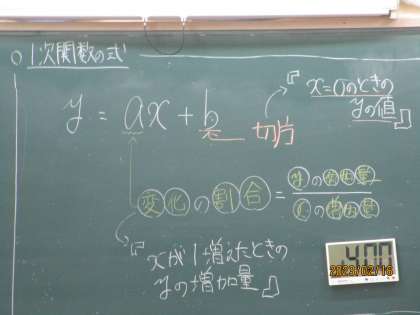 ○ 1次関数の式
y = ax + b
切片
『x=0のときの
yの値』
変化の割合 = yの増加量
xの増加量
『xが1増えたときの
yの増加量』
4:00
2023/02/16